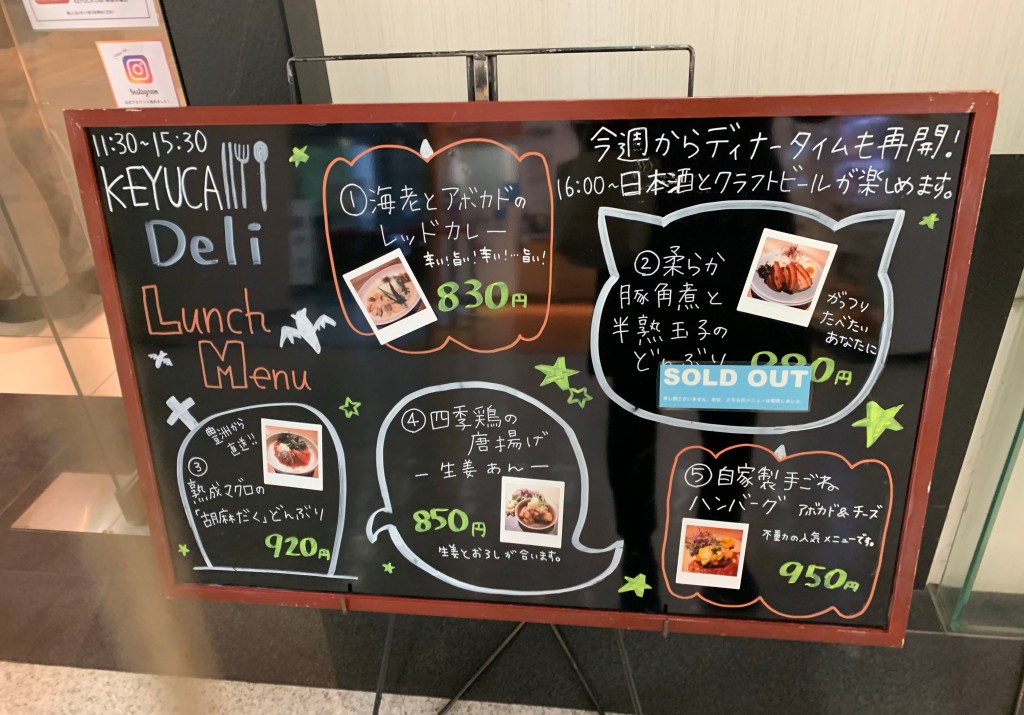 Instagram
11:30~15:30
KEYUCA
Deli
Lunch
Menu
今週からディナータイムも再開!
16:00~日本酒とクラフトビールが楽しめます。
①海老とアボカドの
レッドカレー
辛い!旨い!辛い!…旨い!
830円
②柔らか
豚角煮と
半熟玉子の
どんぶり
がっつり
たべたい
あなたに
円
SOLD OUT
豊洲から
直送!!
③
熟成マグロの
「胡麻だく」どんぶり
920円
④四季鶏の
唐揚げ
ー生姜あんー
850円
生姜とおろしが合います。
⑤自家製手ごね
ハンバーグ アボカド&チーズ
不動の人気メニューです。
950円